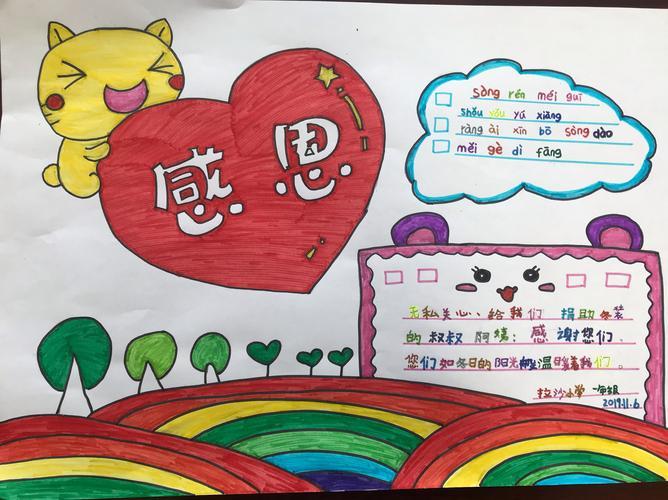 感恩
sòng rén méi guī
shǒu yǒu yú xiāng
ràng ài xīn bō sòng dào
měi gè dì fāng
无私关心、给我们 捐助冬装
的叔叔 阿姨：感 谢您们、
您们如冬日的阳光 温暖着我们。
拉沙小学 一年级
2019.11.6